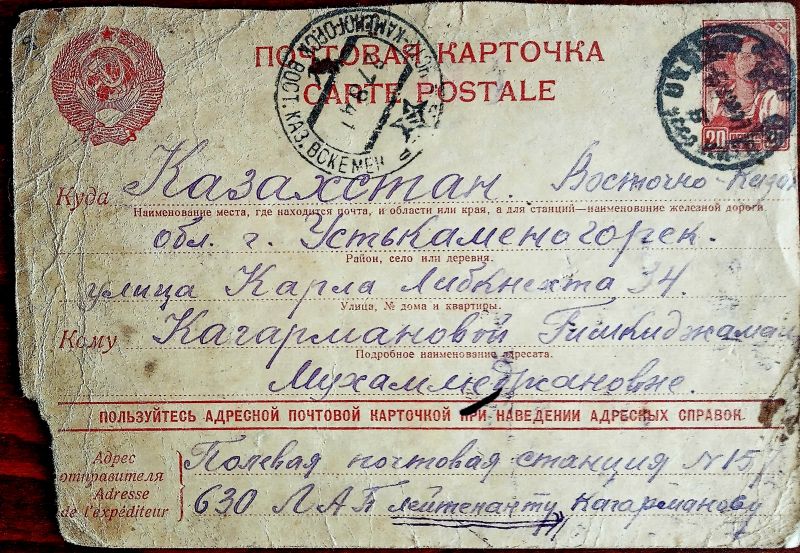 ПОЧТОВАЯ КАРТОЧКА
CARTE POSTALE
ВОСТ. КАЗ. ӨСКЕМЕН
20
Куда Казахстан. Восточно-Казах
Наименование места, где находится почта, и области или края, а для станций—наименование железной дороги
обл. г. Устькаменогорск.
Район, село или деревня.
улица Карла Либкнехта 34.
Улица, № дома и квартиры.
Кому Кагармановой Гишкиджамал
Подробное наименование адресата.
Мухаммеджановне.
ПОЛЬЗУЙТЕСЬ АДРЕСНОЙ ПОЧТОВОЙ КАРТОЧКОЙ ПРИ НАВЕДЕНИИ АДРЕСНЫХ СПРАВОК.
Адрес отправителя
Adresse de l'expéditeur
Полевая почтовая станция N 15
630 ЛАП лейтенанту Кагарманову